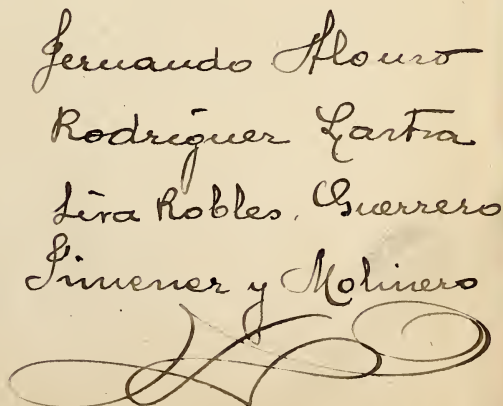 Fernando Alonso
Rodríguez Lastra
Siva Robles, Guerrero
Jimenez y Molinero